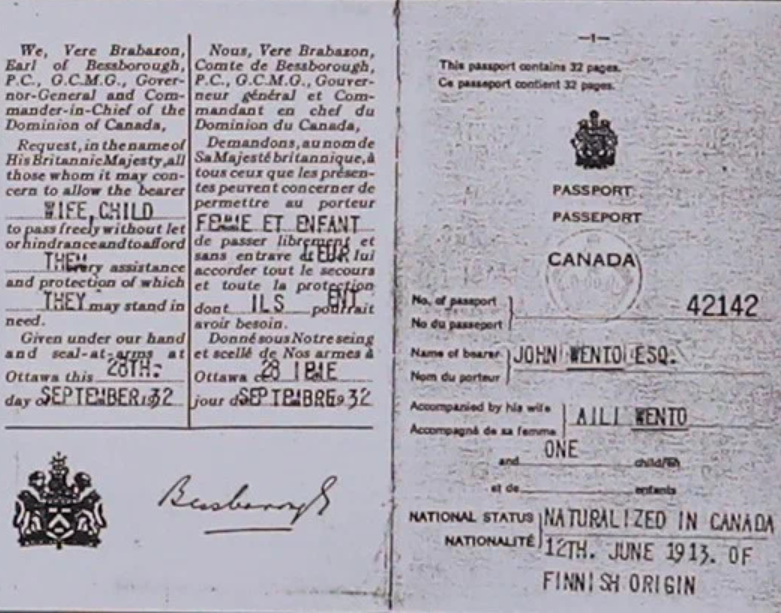 We, Vere Brabazon,
Earl of Bessborough,
P.C., G.C.M.G., Gover-
nor-General and Com-
mander-in-Chief of the
Dominion of Canada,
Request, in the name of
His Britannic Majesty, all
those whom it may con-
cern to allow the bearer
WIFE, CHILD
to pass freely without let
or hindrance and to afford
THEM every assistance
and protection of which
THEY may stand in
need.
Given under our hand
and seal-at-arms at
Ottawa this 28TH.
day of SEPTEMBER 1932
Nous, Vere Brabazon,
Comte de Bessborough,
P.C., G.C.M.G., Gouver-
neur général et Com-
mandant en chef du
Dominion du Canada,
Demandons, au nom de
Sa Majesté britannique, à
tous ceux que les présen-
tes peuvent concerner de
permettre au porteur
FEMME ET ENFANT
de passer librement et
sans entrave et LEUR lui
accorder tout le secours
et toute la protection
dont ILS ENT pourrait
avoir besoin.
Donné sous Notre seing
et scellé de Nos armes à
Ottawa ce 28 IEME
jour de SEPTEMBRE 1932
Bessborough
—1—
This passport contains 32 pages.
Ce passeport contient 32 pages.
PASSPORT
PASSEPORT
CANADA
No. of passport
No du passeport
42142
Name of bearer JOHN WENTO ESQ.
Nom du porteur
Accompanied by his wife AILI WENTO
Accompagné de sa femme
and ONE child/en
et de enfants
NATIONAL STATUS NATURALIZED IN CANADA
NATIONALITÉ 12TH. JUNE 1913. OF
FINNISH ORIGIN